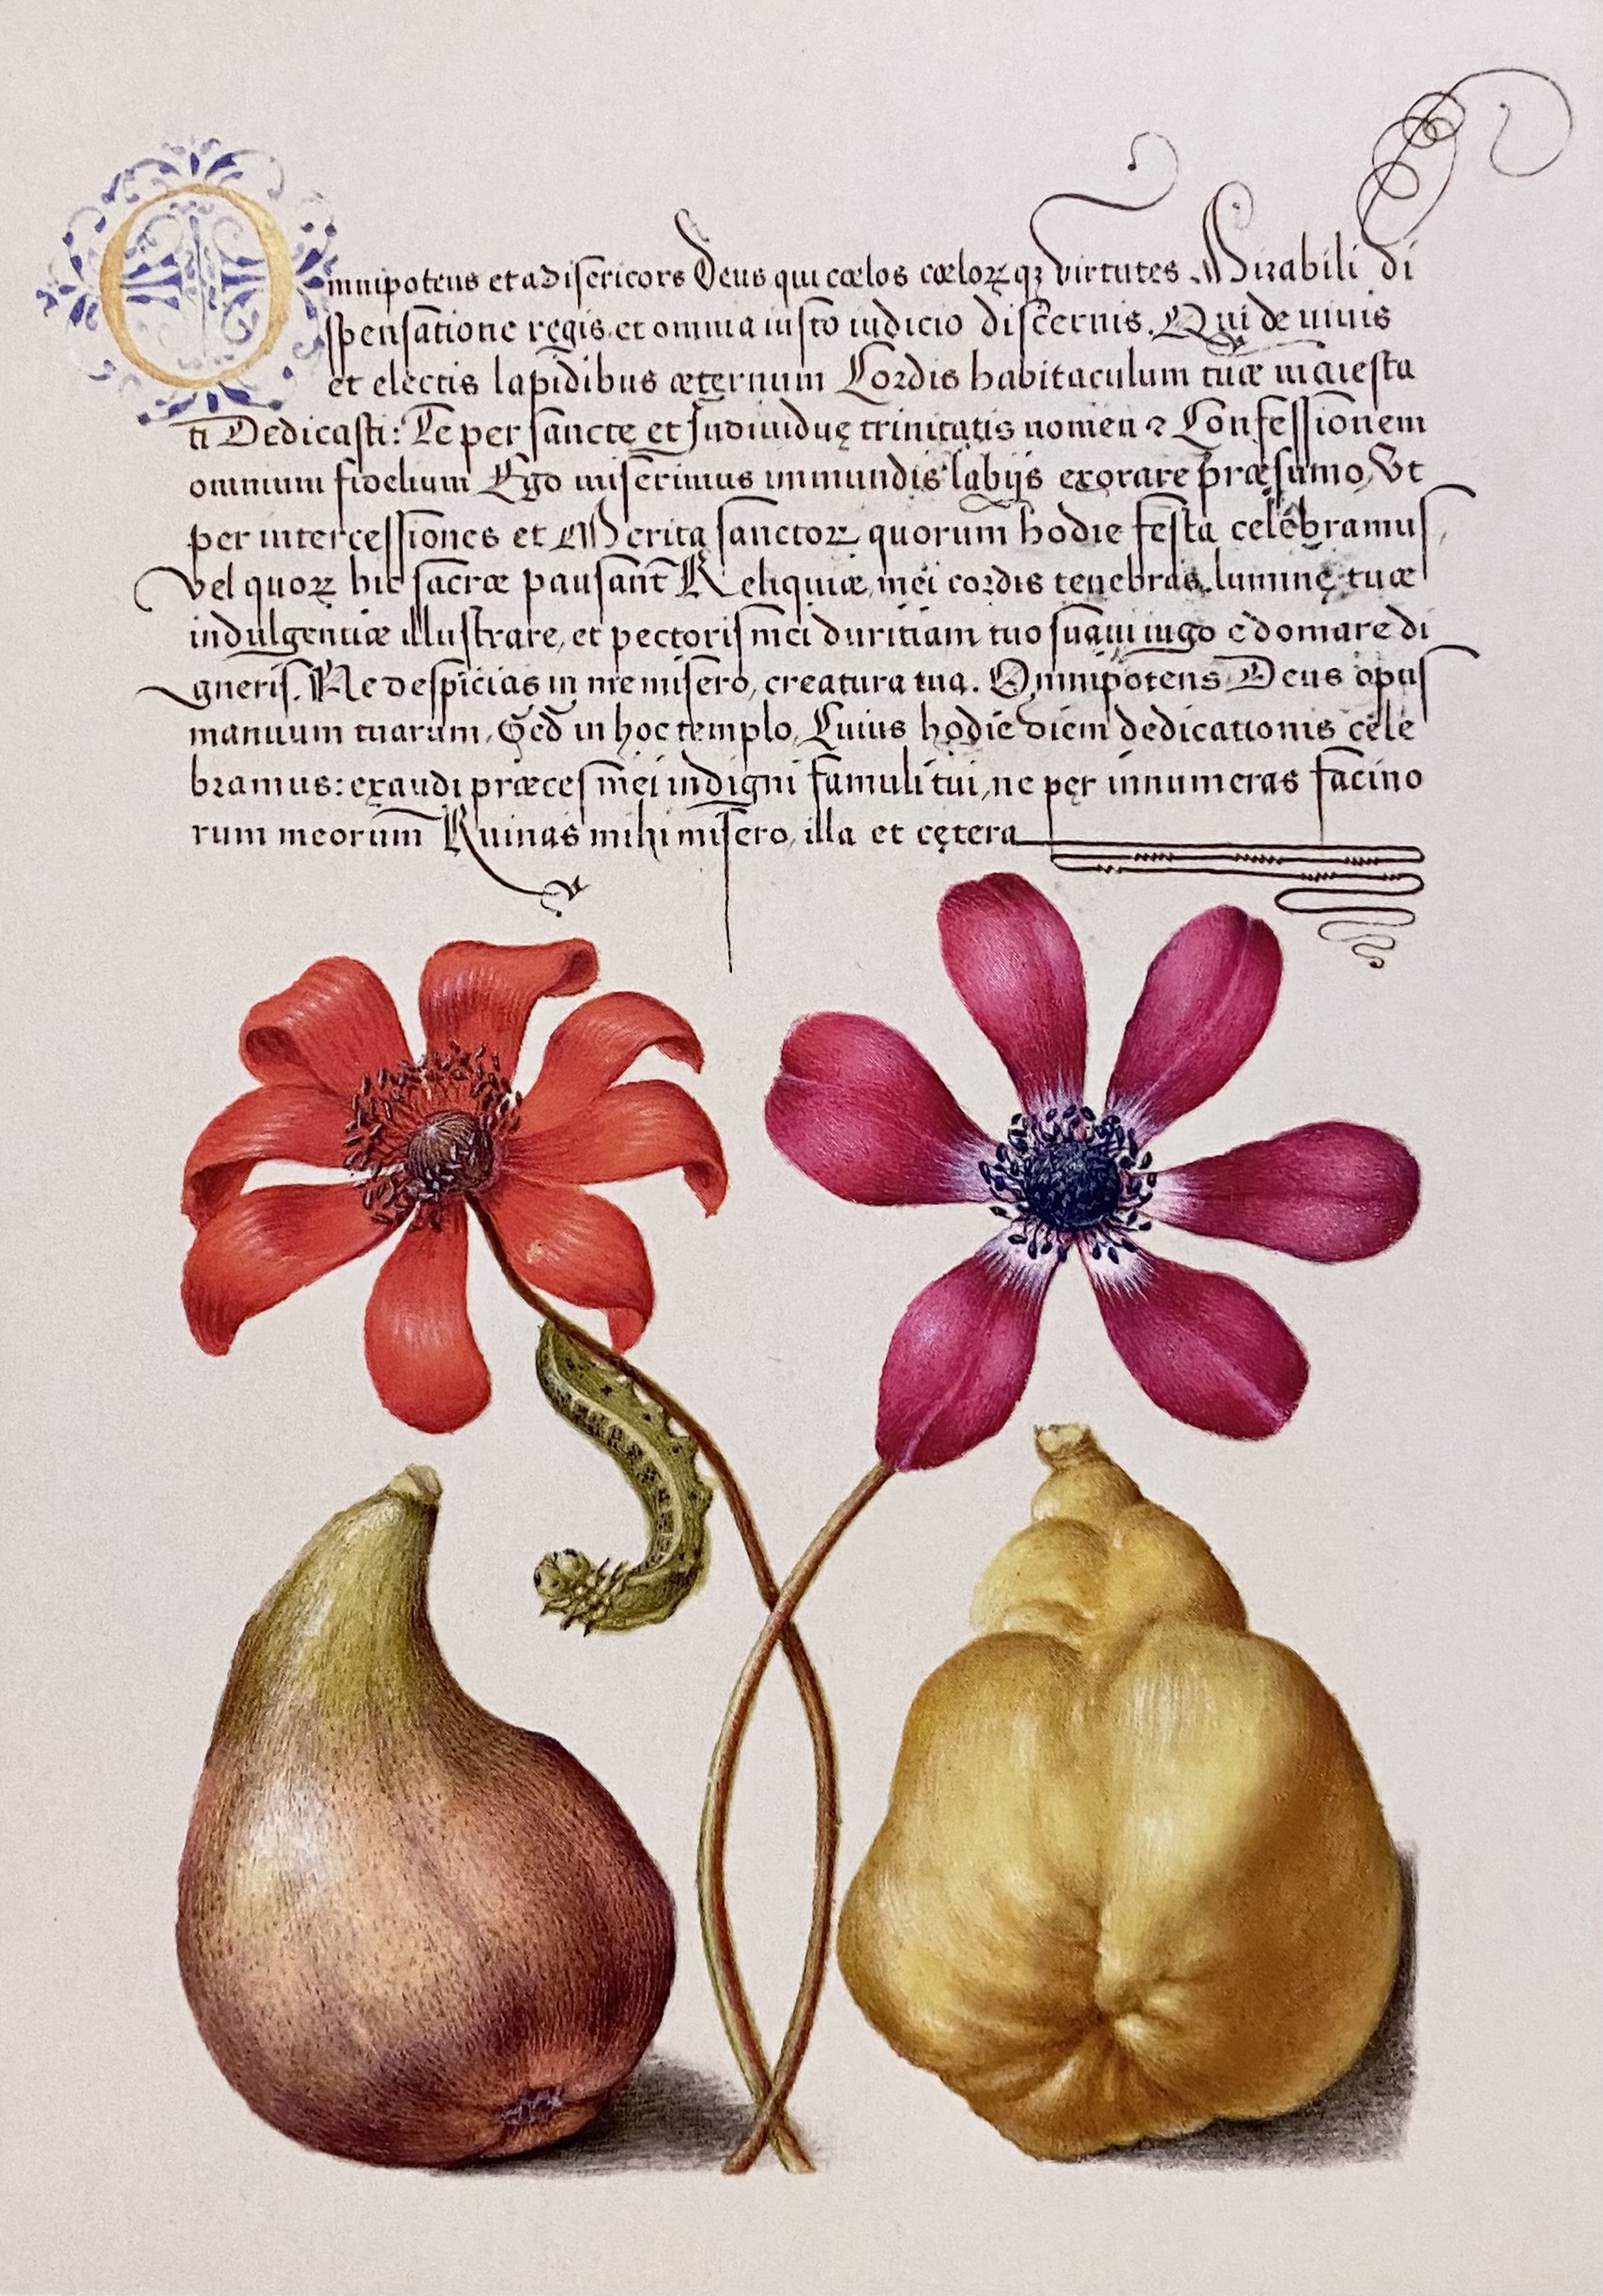 Omnipotens et Misericors Deus qui cœlos cœlorꝝqꝫ virtutes Mirabili di
spensatione regis, et omnia iusto iudicio discernis. Qui de uiuis
et electis lapidibus æternum Cordis habitaculum tuæ maiesta
ti Dedicasti: Te per sancte et Indiuiduę trinitatis nomen ⁊ Confessionem
omnium fidelium Ego miserimus immundis labijs exorare præsumo, Vt
per intercessiones et Merita sanctoꝝ quorum hodie festa celebramus,
vel quoꝝ hic sacræ pausant Reliquiæ, mei cordis tenebras luminę tuæ
indulgentiæ illustrare, et pectoris mei duritiam tuo suaui iugo edomare di
gneris. Ne despicias in me misero, creatura tua. Omnipotens Deus opus
manuum tuarum, Sed in hoc templo, Cuius hodie diem dedicationis cele
bramus: exaudi præces mei indigni famuli tui, ne per innumeras facino
rum meorum Ruinas mihi misero, illa et cętera